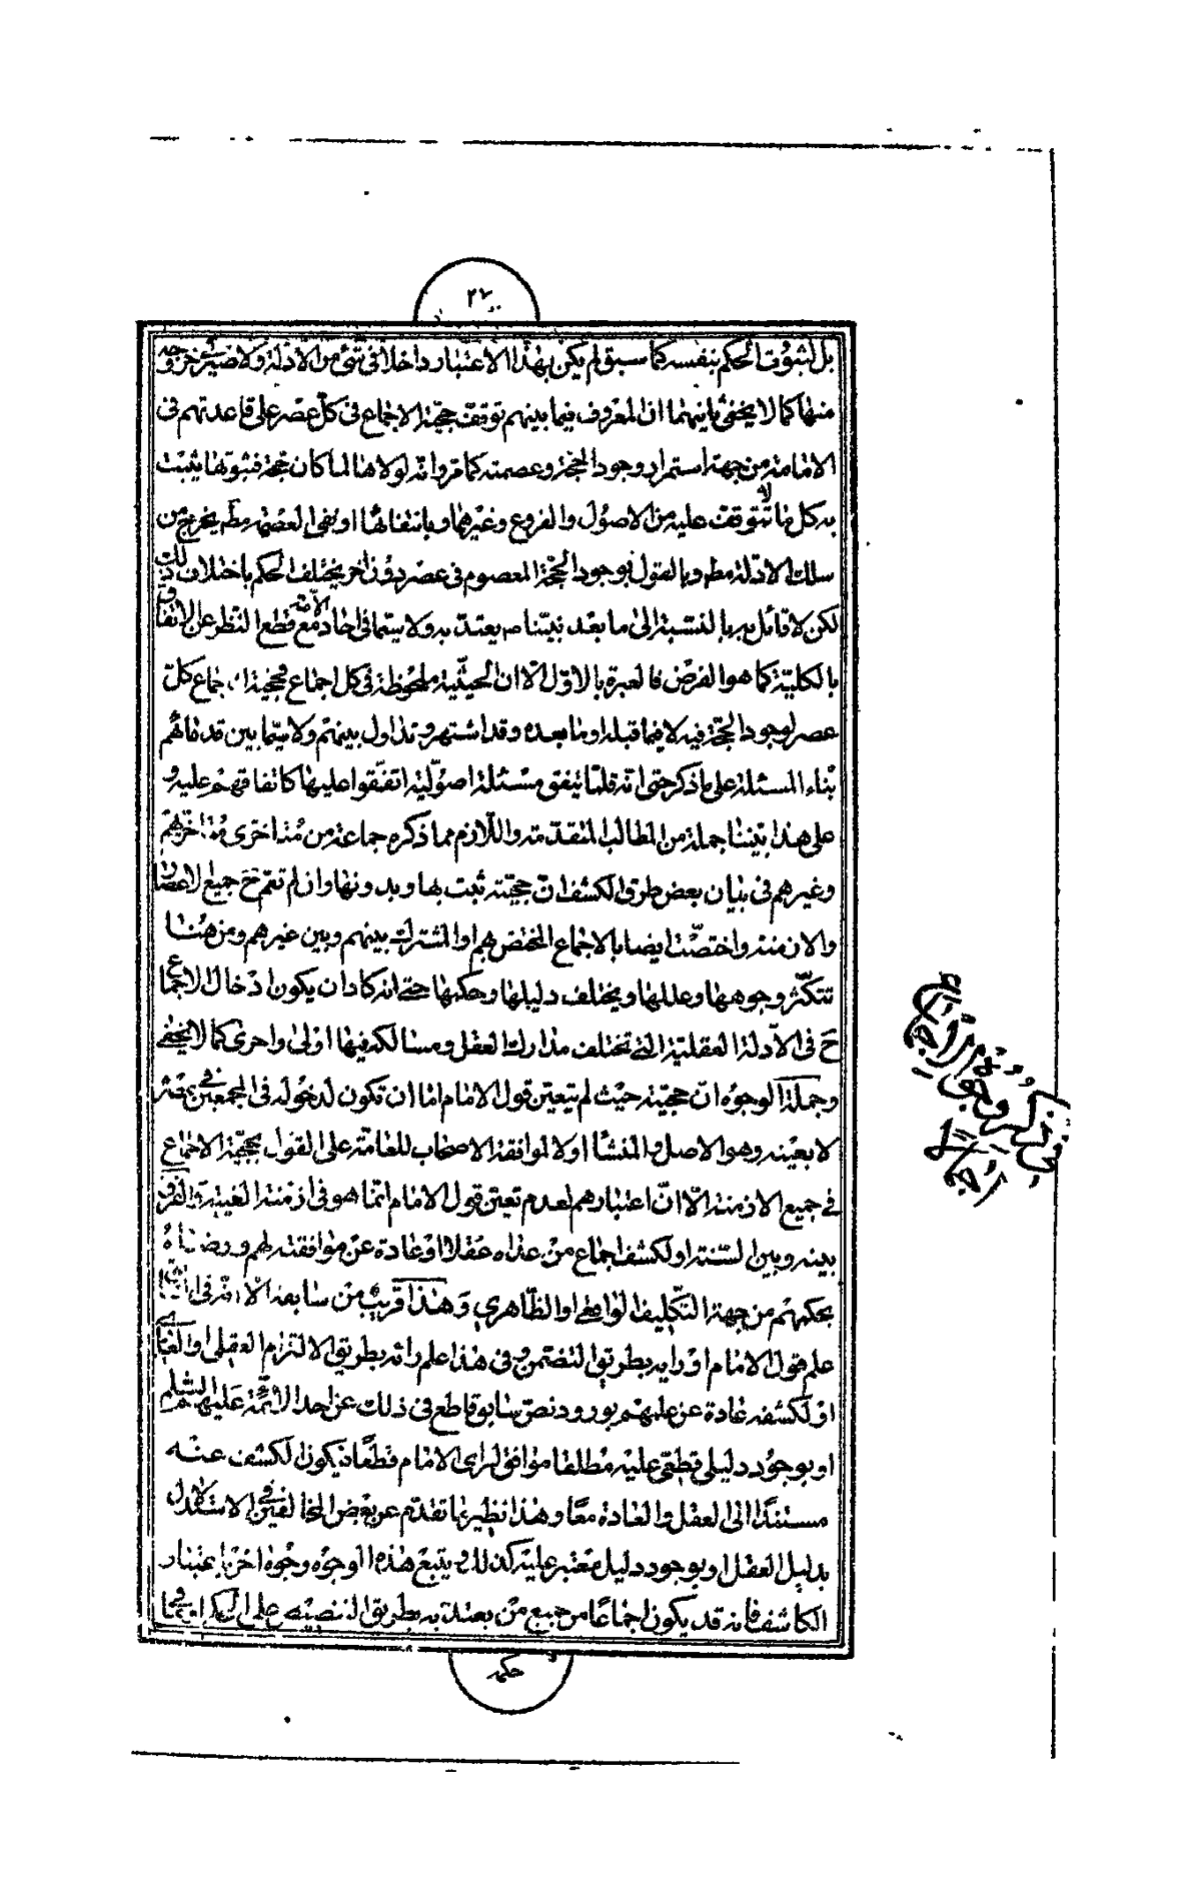 ٢٧
بل لثبوت الحكم بنفسه كما سبق لم يكن بهذا الاعتبار داخلا فى شئ من الادلة ولا ضير فى خروجه
منها كما لا يخفى ثانيهما ان المعروف فيما بينهم توقف حجية الاجماع فى كل عصر على قاعدتهم فى
الامامة من جهة استمرار وجود الحجة وعصمته كما مر وانه لولاها لما كان حجة فبثبوتها يثبت
به كل ما لا تتوقف عليه من الاصول والفروع وغيرهما وبانتفائها او نفى العصمة مط يخرج من
سلك الادلة مط وبالقول بوجود الحجة المعصوم فى عصر دون اخر يختلف الحكم باختلاف ذلك
لكن لا قائل به بالنسبة الى ما بعد نبينا ص يعتد به ولا سيما فى احاد الامة مع قطع النظر عن الاتفاق
بالكلية كما هو الفرض فالعبرة بالاول الا ان الحيثية ملحوظة فى كل اجماع فحجية اجماع كل
عصر لوجود الحجة فيه لا فيما قبله او ما بعده وقد اشتهر وتداول بينهم ولا سيما بين قدمائهم
بناء المسئلة على ما ذكر حتى انه قلما يتفق مسئلة اصولية اتفقوا عليها كاتفاقهم عليه و
على هذا بتينا جملة من المطالب المتقدمة واللازم مما ذكره جماعة من متاخرى متاخريهم
وغيرهم فى بيان بعض طرق الكشف ان حجيته ثبت بها وبدونها وان لم تعم ح جميع الاعصار
والازمنة واختصت ايضا بالاجماع المختص بهم او المشترك بينهم وبين غيرهم ومن هنا
تتكثر وجوهها وعللها ويختلف دليلها وحكمها حتى انه كاد ان يكون ادخال الاجماع
ح فى الادلة العقلية التى تختلف مدارك العقل ومسالكه فيها اولى واحرى كما لا يخفى
وجملة الوجوه ان حجيته حيث لم يتعين قول الامام اما ان تكون لدخوله فى المجمعين بعضه
لا بعينه وهو الاصل والمنشا اولا لموافقة الاصحاب للعامة على القول بحجية الاجماع
فى جميع الازمنة الا ان اعتبارهم لعدم تعين قول الامام انما هو فى ازمنة الغيبة والفرق
بينه وبين السنة او لكشف اجماع من عداه عقلا او عادة عن موافقته لهم ورضاه
بحكمهم من جهة التكليف الواقعى او الظاهرى وهذا قريب من سابعة الا انه فى
علم قول الامام او رايه بطريق التضمن وفى هذا علم رايه بطريق الالتزام العقلى او العادى
او لكشفه عادة عن علمهم بورود نص سابق قاطع فى ذلك عن احد الائمة عليهم السلم
او بوجود دليل قطعى عليه مطلقا موافق لراى الامام قطعا فيكون الكشف عنه
مستندا الى العقل والعادة معا وهذا نظير ما تقدم عن بعض المخالفين فى الاستدلال
بدليل العقل او بوجود دليل معتبر عليه كذلك ويتبع هذه الوجوه وجوه اخر باعتبار
الكاشف فانه قد يكون اجماعا من جميع من يعتد به بطريق التنصيص على الحكم فيما
حكمه
فى ذكر وجوه الاجماع
اجمالا